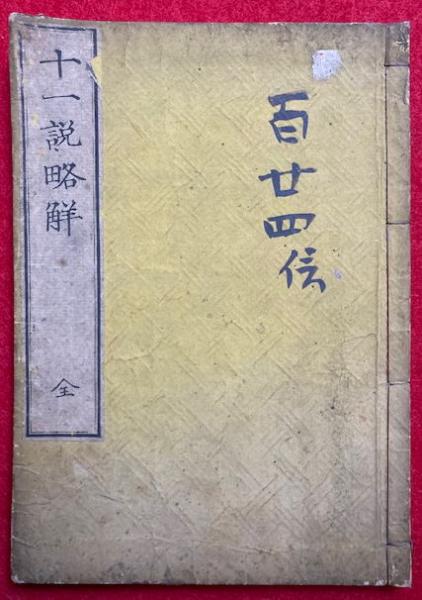 百廿四
十一説略觧
全